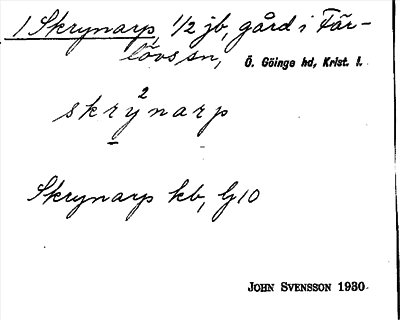 1 Skrynarp, 1/2 jb, gård i Fär-
lövs sn, Ö. Göinge hd, Krist. l.
2
skrynarp
Skrynarp kb, lj 10
JOHN SVENSSON 1930.